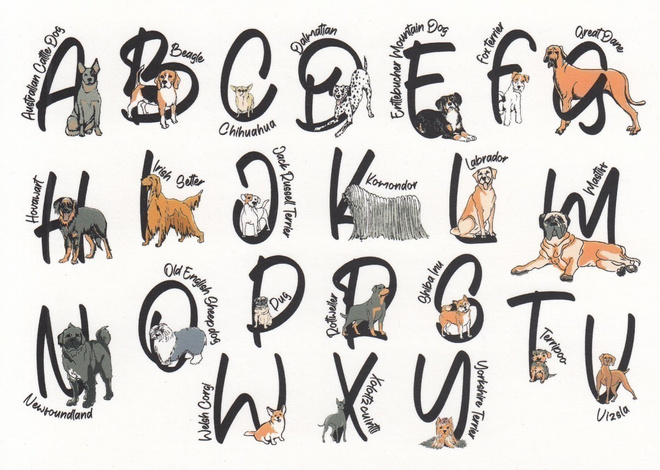 A
Australian Cattle Dog
B
Beagle
C
Chihuahua
D
Dalmatian
E
Entlebucher Mountain Dog
F
Fox terrier
G
Great Dane
H
Hovawart
I
Irish Setter
J
Jack Russell Terrier
K
Komondor
L
Labrador
M
Mastiff
N
Newfoundland
O
Old English Sheepdog
P
Pug
R
Rottweiler
S
Shiba Inu
T
V
Vizsla
W
Welsh Corgi
X
Xoloitzcuintli
Y
Yorkshire Terrier